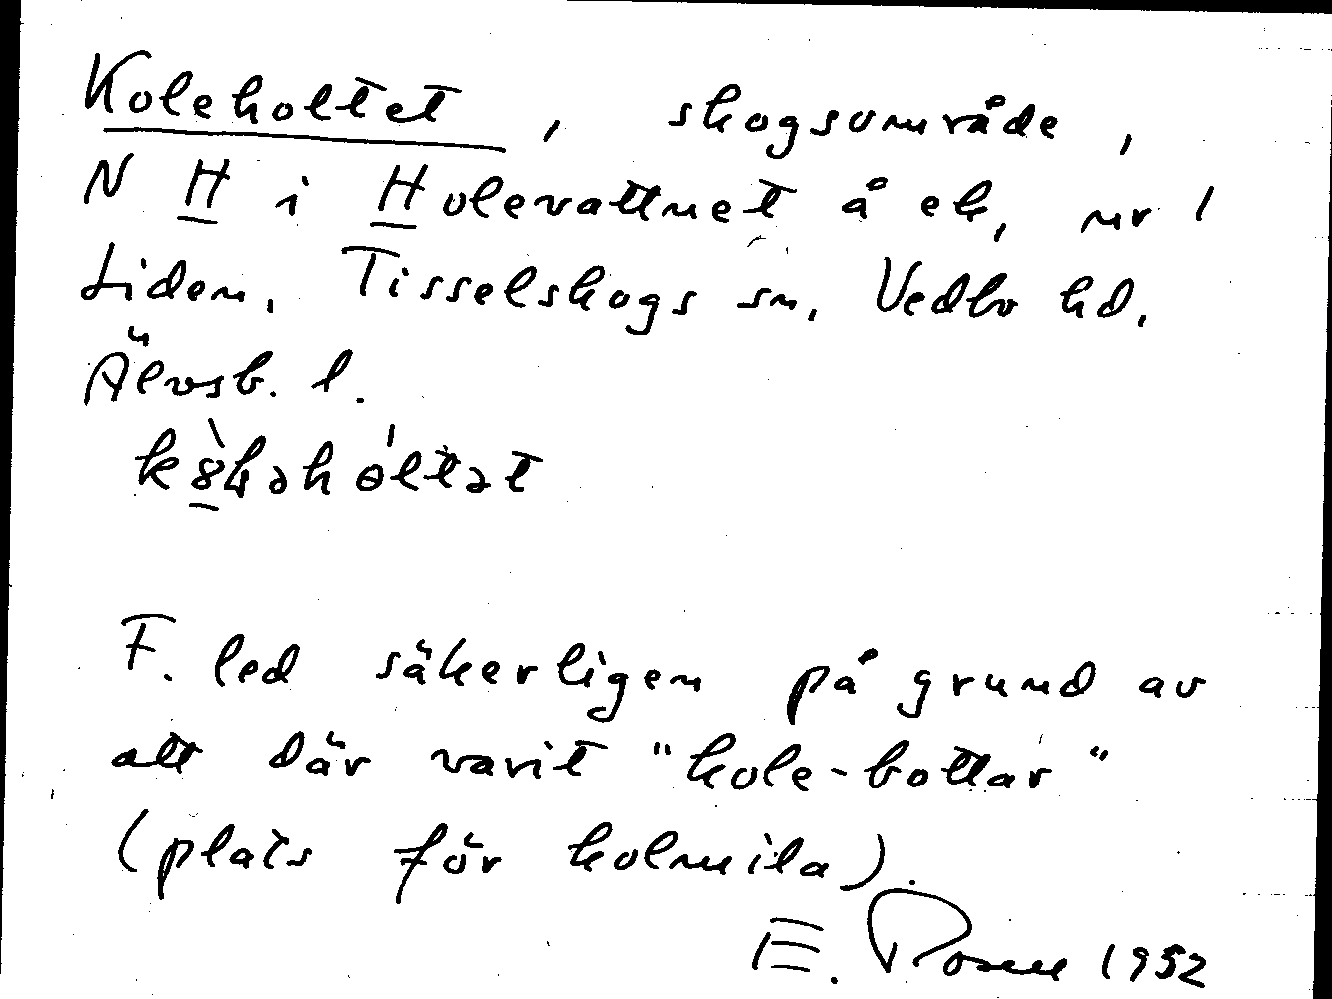 Koleholtet, skogsområde,
N H i Holevattnet å ek, nr 1
Liden, Tisselskogs sn, Vedbo hd,
Älvsb. l.
F. led säkerligen på grund av
att där varit "kole-bottar"
(plats för kolmila).
E. Rosell 1952